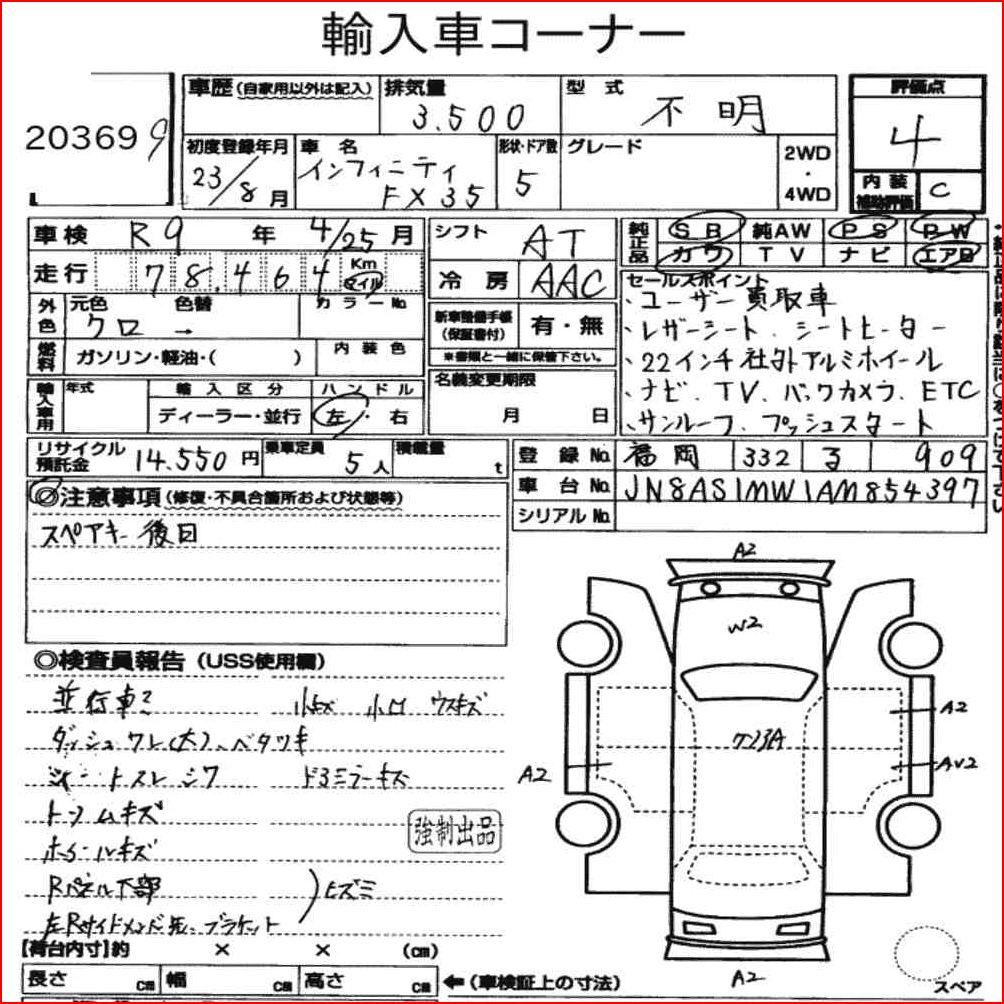 輸入車コーナー
203699
車歴 (自家用以外は記入)
排気量
3.500
型式
不明
評価点
4
初度登録年月
23/8月
車名
インフィニティ
FX35
形状・ドア数
5
グレード
2WD
・
4WD
内装
補助評価
C
車検 R9年 4/25月
シフト
AT
純正品
SR 純AW PS PW
カワ TV ナビ エアB
走行 78.464 Km マイル
冷房 AAC
セールスポイント
・ユーザー買取車
・レザーシート、シートヒーター
・22インチ社外アルミホイール
・ナビ、TV、バックカメラ、ETC
・サンルーフ、プッシュスタート
外色
元色 色替 カラーNo
クロ →
新車整備手帳
(保証書付)
有・無
※書類と一緒に保管下さい。
燃料
ガソリン・軽油・( )
内装色
名義変更期限
月 日
輸入車用
年式
輸入区分
ディーラー・並行
ハンドル
左・右
リサイクル
預託金
14.550円
乗車定員
5人
積載量
t
登録No. 福岡 332 る 909
車台No. JN8AS1MW1AM854397
シリアルNo.
◎注意事項 (修復・不具合箇所および状態等)
スペアキー後日
◎検査員報告 (USS使用欄)
並行車
ダッシュワレ(大)、ベタツキ
シートスレ シワ
ドアミラーキズ
トリムキズ
ホイールキズ
強制出品
Rパネル下部
ヒズミ
左Rサイドメンバ先、ブラケット
A2
W2
A2
A2
AW2
A2
スペア
【荷台内寸】約 × × (cm)
長さ cm 幅 cm 高さ cm
←(車検証上の寸法)